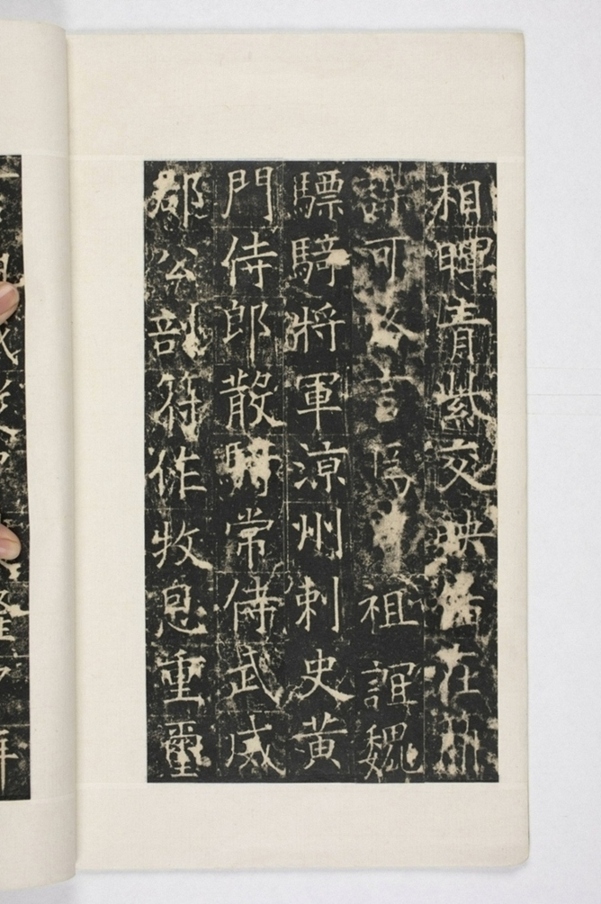 相暉青紫交映焉在冊
詳可畧言焉　祖誼魏
驃騎將軍涼州刺史黃
門侍郎散騎常侍武威
郡公剖符作牧息重璽